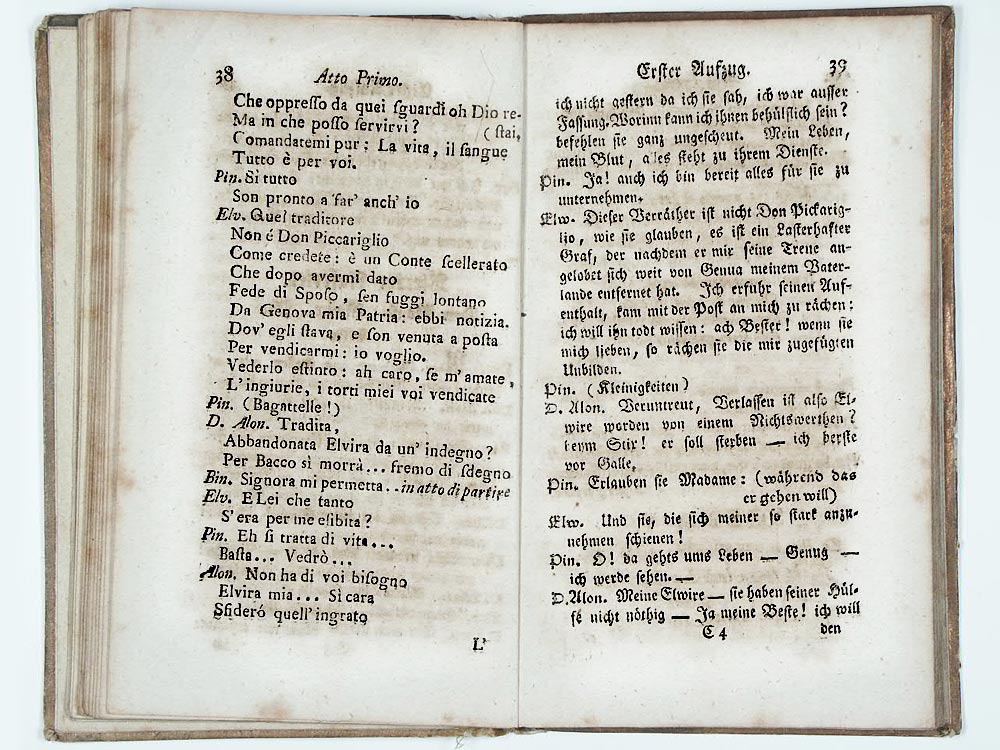 38
Atto Primo.
Che oppreſſo da quei ſguardi oh Dio re-
Ma in che poſſo ſervirvi?
(ſtai,
Comandatemi pur; La vita, il ſangue
Tutto è per voi.
Pin. Sì tutto
Son pronto a far' anch' io
Elv. Quel traditore
Non é Don Piccariglio
Come credete: è un Conte ſcellerato
Che dopo avermi dato
Fede di Spoſo, ſen fuggì lontano
Da Genova mia Patria: ebbi notizia.
Dov' egli ſtava, e ſon venuta a poſta
Per vendicarmi: io voglio.
Vederlo eſtinto: ah caro, ſe m' amate,
L' ingiurie, i torti miei voi vendicate
Pin. (Bagattelle!)
D. Alon. Tradita,
Abbandonata Elvira da un' indegno?
Per Bacco sì morrà... fremo di ſdegno
Bin. Signora mi permetta.. in atto di partire
Elv. E Lei che tanto
S' era per me eſibita?
Pin. Eh ſi tratta di vita...
Baſta... Vedrò...
Alon. Non ha di voi biſogno
Elvira mia... Sì cara
Sfideró quell' ingrato
L'
Erſter Aufzug.
39
ich nicht geſtern da ich ſie ſah, ich war auſſer
Faſſung. Worinn kann ich ihnen behülflich ſein?
befehlen ſie ganz ungeſcheut. Mein Leben,
mein Blut, alles ſteht zu ihrem Dienſte.
Pin. Ja! auch ich bin bereit alles für ſie zu
unternehmen.
Elw. Dieſer Verräther iſt nicht Don Pickarig-
lio, wie ſie glauben, es iſt ein Laſterhafter
Graf, der nachdem er mir ſeine Treue an-
gelobet ſich weit von Genua meinem Vater-
lande entfernet hat. Ich erfuhr ſeinen Auf-
enthalt, kam mit der Poſt an mich zu rächen:
ich will ihn todt wiſſen: ach Beſter! wenn ſie
mich lieben, ſo rächen ſie die mir zugefügten
Unbilden.
Pin. (Kleinigkeiten)
D. Alon. Veruntreut, Verlaſſen iſt alſo El-
wire worden von einem Nichtswerthen?
beym Stix! er ſoll ſterben — ich berſte
vor Galle.
Pin. Erlauben ſie Madame: (während das
er gehen will)
Elw. Und ſie, die ſich meiner ſo ſtark anzu-
nehmen ſchienen!
Pin. O! da gehts ums Leben — Genug —
ich werde ſehen. —
D. Alon. Meine Elwire — ſie haben ſeiner Hül-
fe nicht nöthig — Ja meine Beſte! ich will
C 4
den